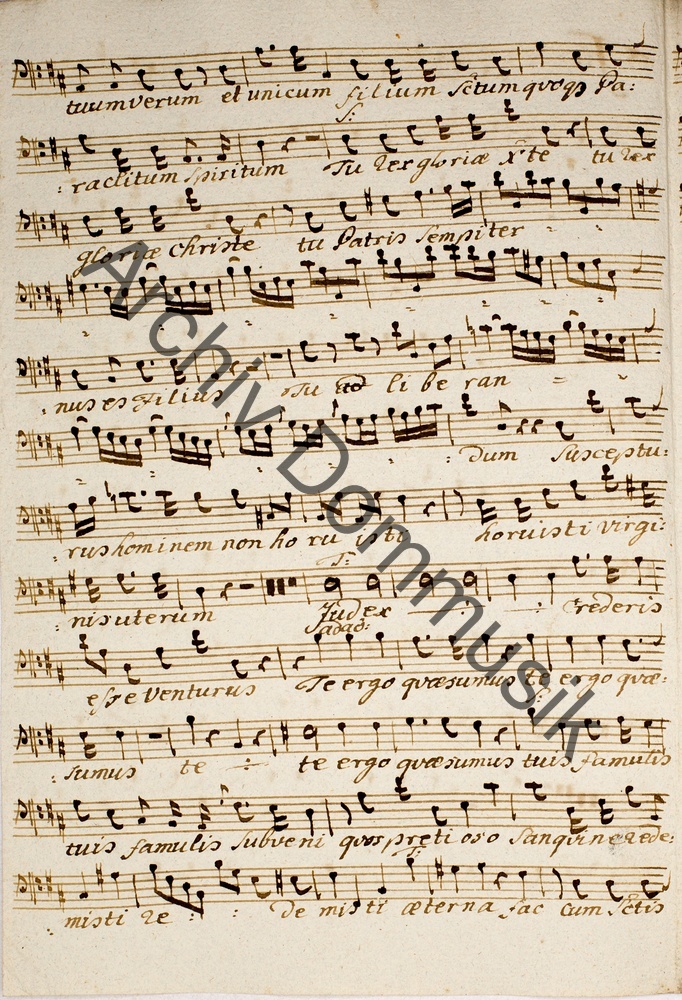 tuum verum et unicum filium sctum quoqs Pa:
S:
: raclitum spiritum Tu Rex gloriæ Xte tu Rex
gloriæ Christe tu Patris Sempiter
: nus es Filius Tu ad li be ran
: dum Susceptu:
: rus hominem non ho ru isti horuisti virgi:
T:
: nis uterum Judex Crederis
adago:
esse Venturus Te ergo quæsumus te ergo quæ:
S:
: sumus te te ergo quæsumus tuis famulis
tuis famulis Subveni quos pretioso Sanguine rede:
T:
misti re : : De misti æterna fac cum Sctis
Archiv Dommusik